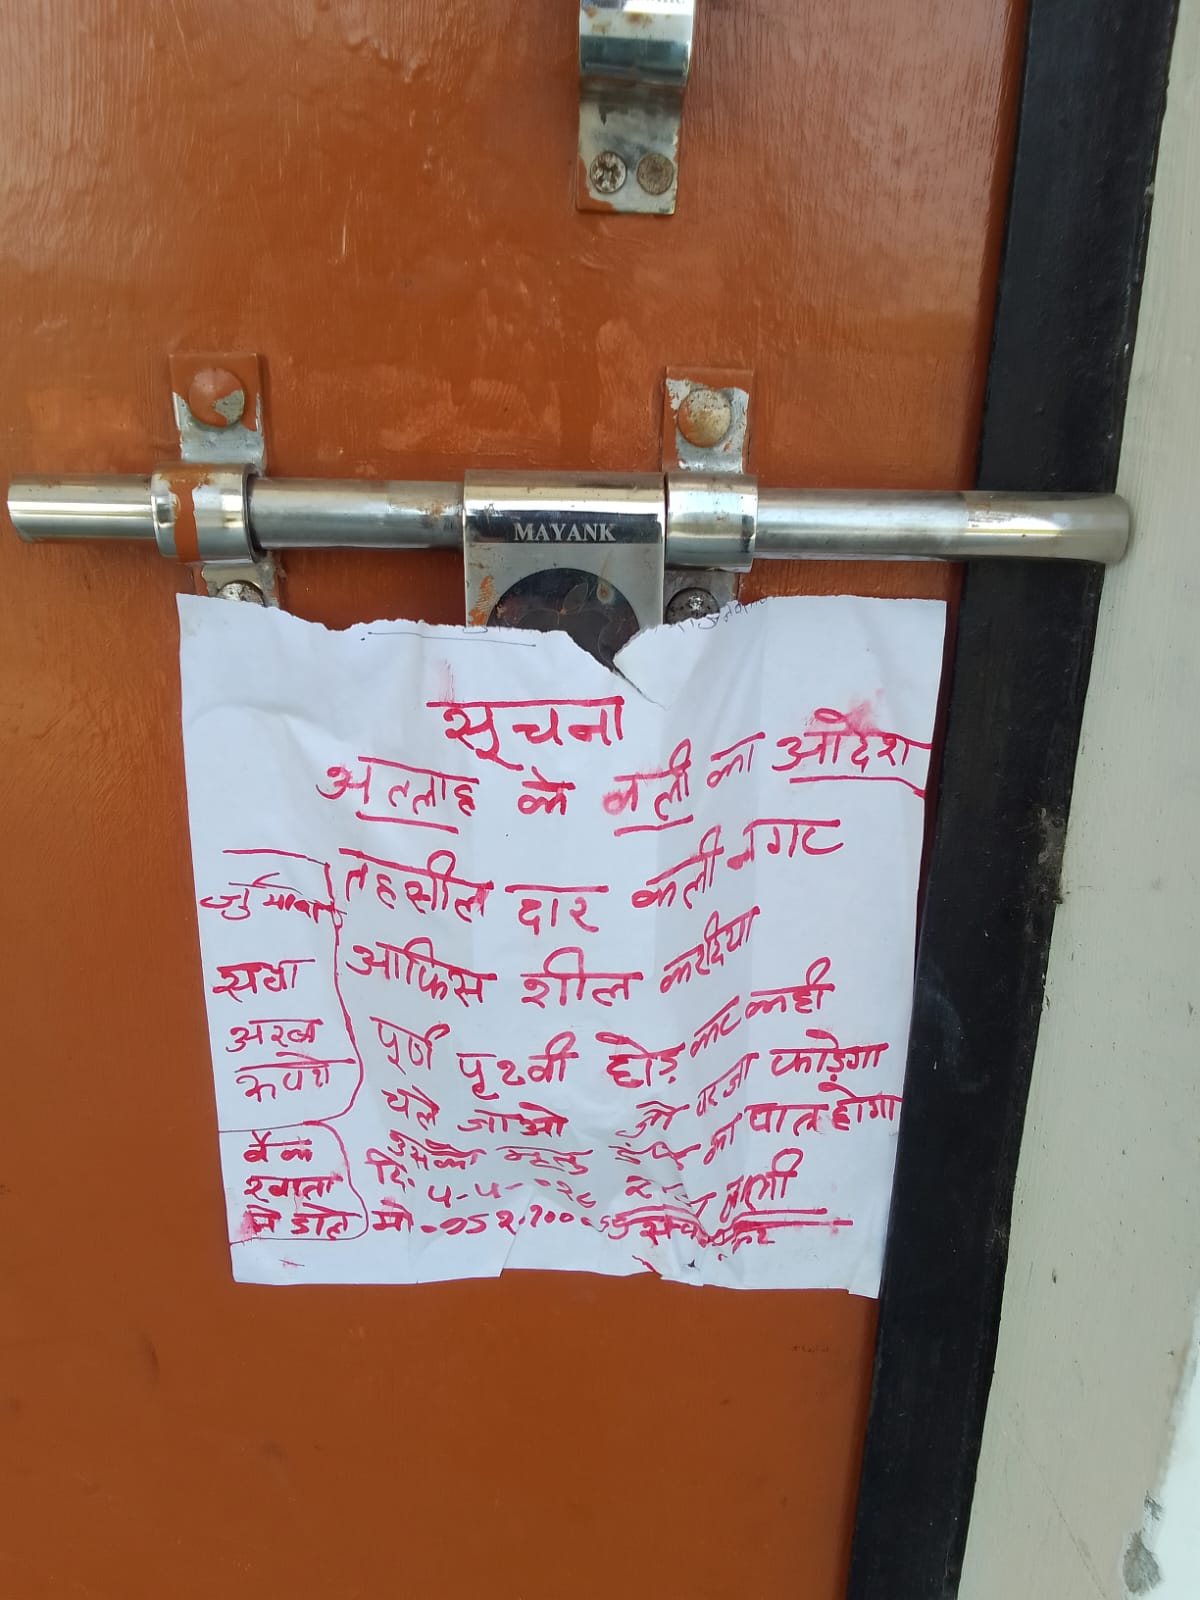 MAYANK
सूचना
अल्लाह के वली का आदेश
तहसील दार कली नगर
आफिस शील कर दिया
पूर्ण पृथ्वी छोड़ कर कही
चले जाओ जो परजा फाड़ेगा
उसको मृत्यु दंड का पात्र होगा
दि. ५-५-
मो.
जुर्माना
सवा
अरब
रूपये
बैंक
खाता
मे डाले